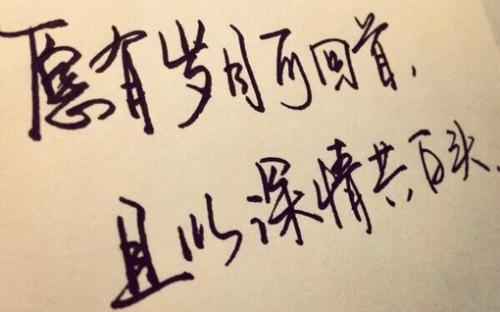 愿有岁月可回首.
且以深情共百头.